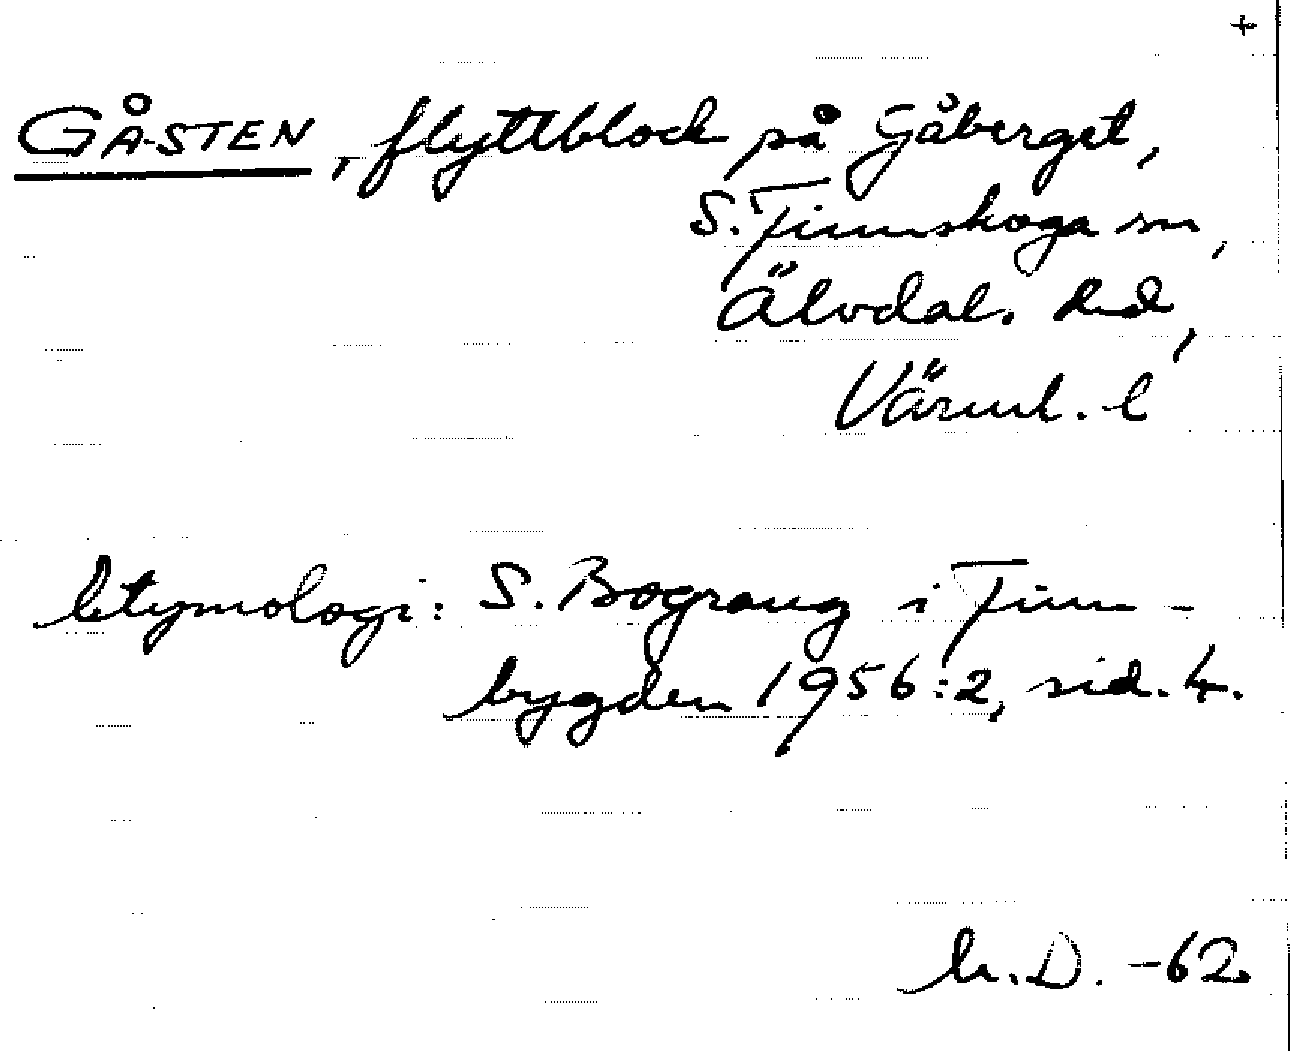 +
GÅSTEN, flyttblock på Gåberget,
S. Finnskoga sn,
Älvdal. hd,
Värml. l
Etymologi: S. Bograng i Finn-
bygden 1956:2, sid. 4.
h.D. -62